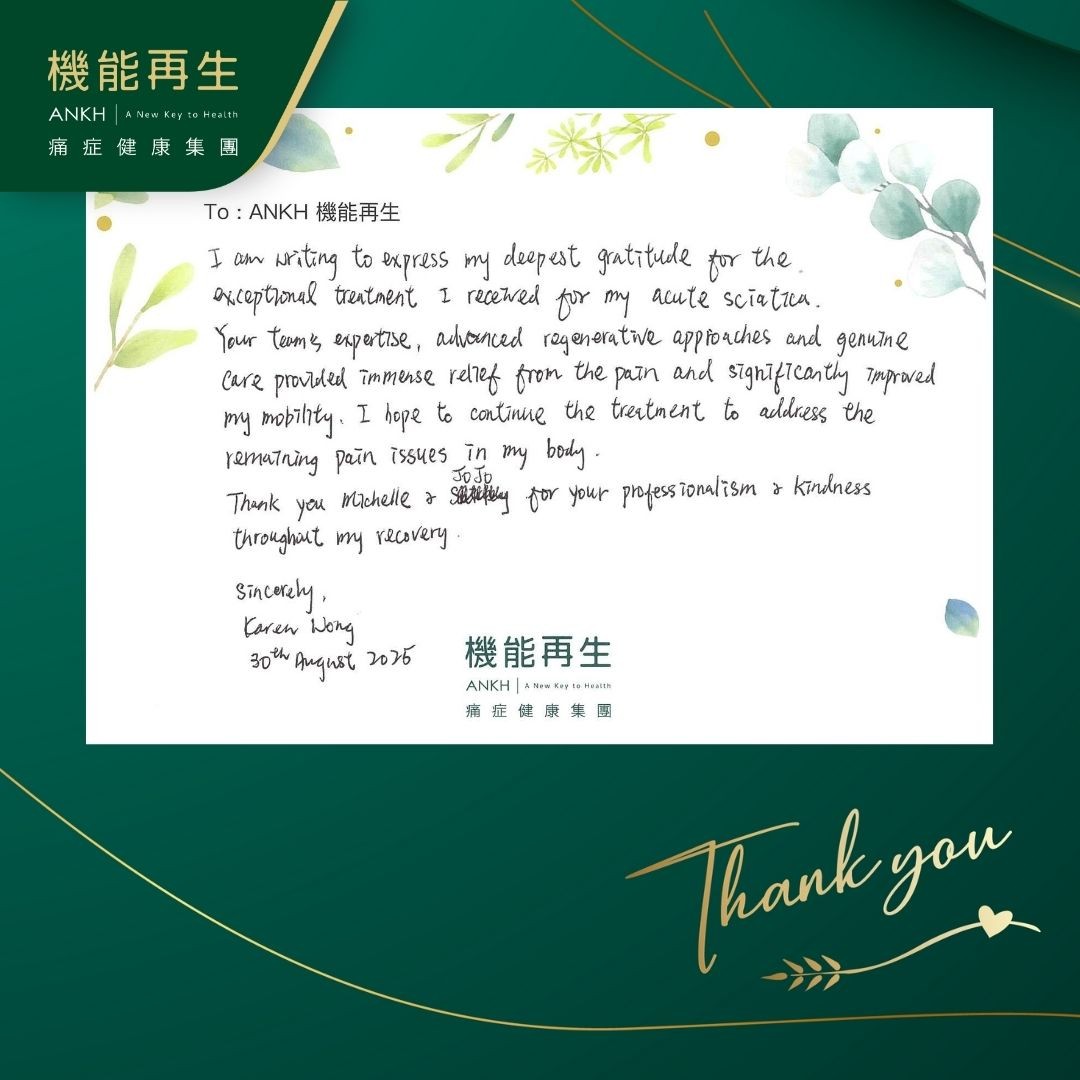 機能再生
ANKH | A New Key to Health
痛症健康集團
To : ANKH 機能再生
I am writing to express my deepest gratitude for the
exceptional treatment I received for my acute sciatica.
Your team's expertise, advanced regenerative approaches and genuine
care provided immense relief from the pain and significantly improved
my mobility. I hope to continue the treatment to address the
remaining pain issues in my body.
JoJo
Thank you Michelle & for your professionalism & kindness
throughout my recovery.
Sincerely,
Karen Wong
30th August 2025
機能再生
ANKH | A New Key to Health
痛症健康集團
Thank you